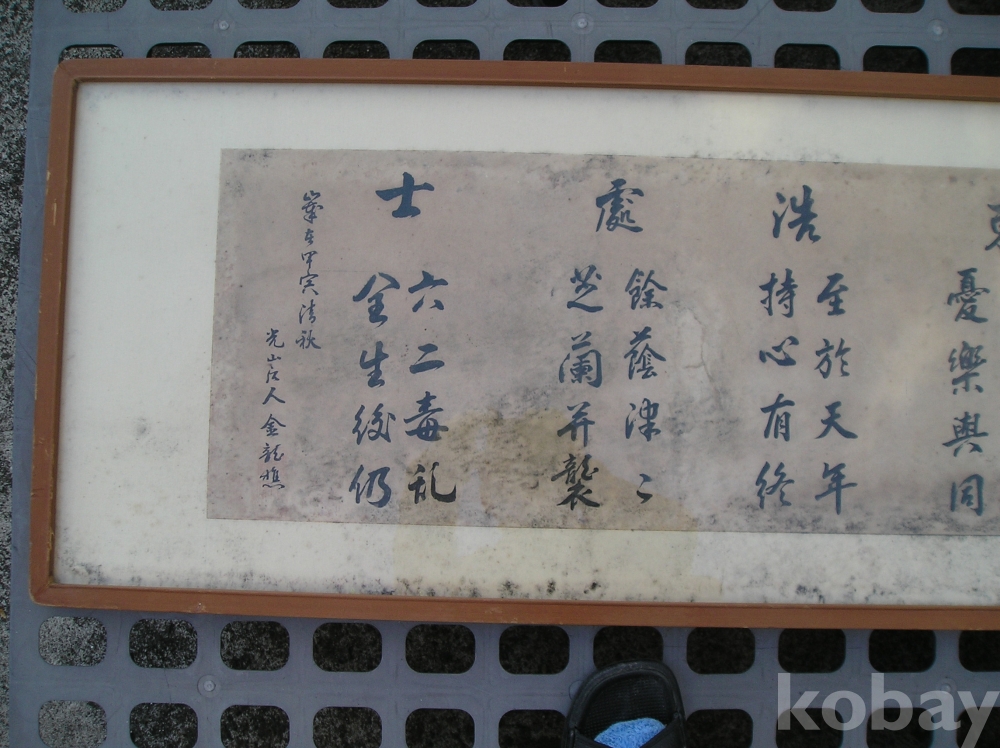 憂樂與同
浩
至於天年
持心有終
處
餘蔭津〻
芝蘭并襲
士
六二毒乱
全生後仍
峯在甲寅清秋
光山后人 金龍憔
kobay